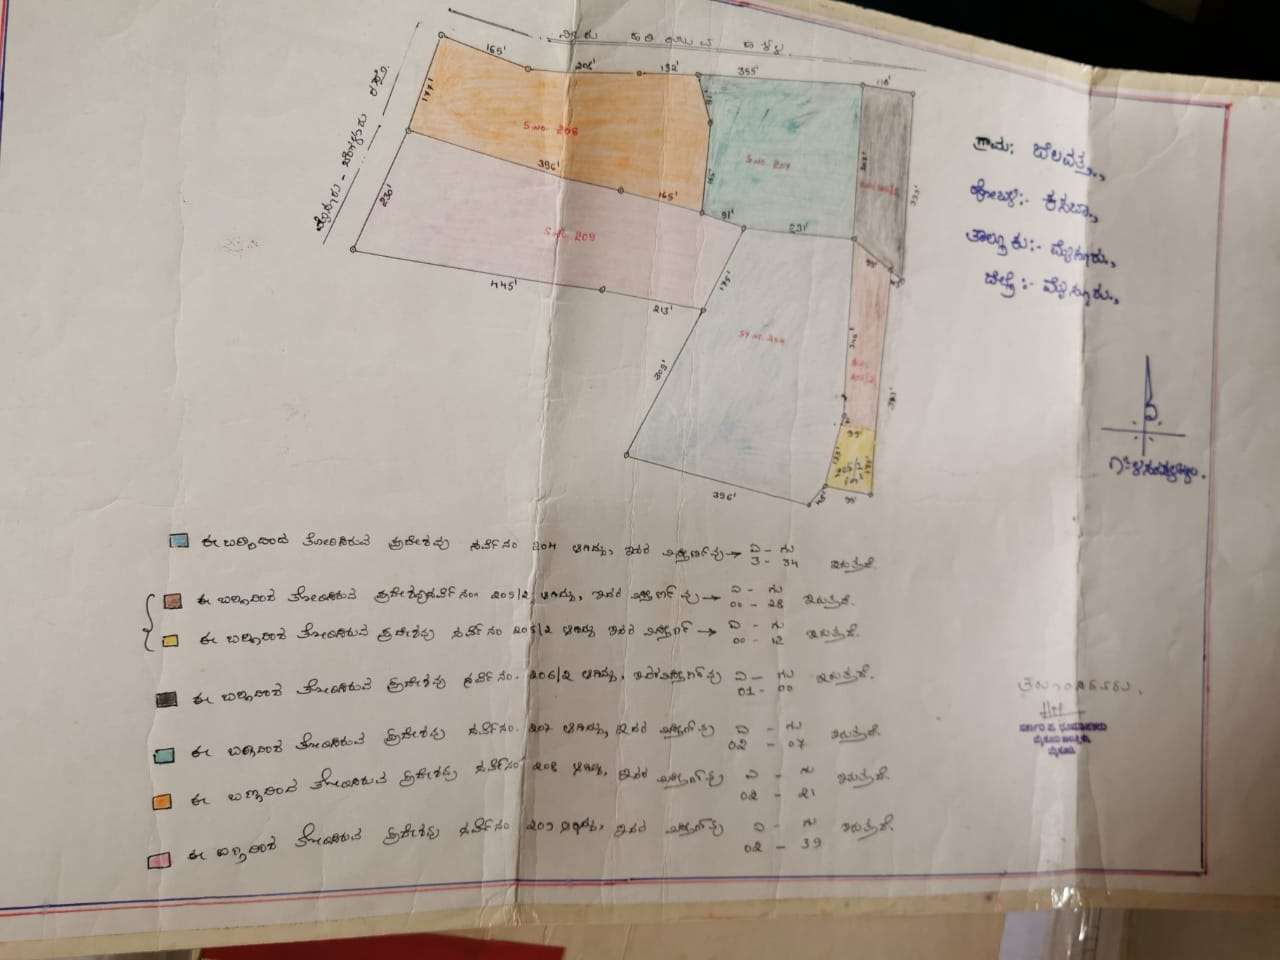 ನೀರು ಹರಿಯುವ ಕಾಲುವೆ
165' 206' 132' 355' 116'
177'
ಮೈಸೂರು - ಬೆಂಗಳೂರು ರಸ್ತೆ.
S.No. 208
S.No. 207
ಗ್ರಾಮ: ಬೆಲವತ್ತ,,
396'
165'
230'
91'
231'
333'
ಹೋಬಳಿ:- ಕಸಬಾ,,
S.No. 209
ತಾಲ್ಲೂಕು:- ಮೈಸೂರು,,
ಜಿಲ್ಲೆ:- ಮೈಸೂರು,,
445'
213'
175'
SY No. 204
346'
205/2
309'
99'
396'
99'
ಈ ಬಣ್ಣದಿಂದ ತೋರಿಸಿರುವ ಪ್ರದೇಶವು ಸರ್ವೆ ನಂ 204 ಆಗಿದ್ದು, ಇದರ ವಿಸ್ತೀರ್ಣವು → ಎ - ಗು ಇರುತ್ತದೆ.
3 - 34
ಈ ಬಣ್ಣದಿಂದ ತೋರಿಸಿರುವ ಪ್ರದೇಶವು ಸರ್ವೆ ನಂ. 205/2 ಆಗಿದ್ದು, ಇದರ ವಿಸ್ತೀರ್ಣವು → ಎ - ಗು ಇರುತ್ತದೆ.
00 - 28
ಈ ಬಣ್ಣದಿಂದ ತೋರಿಸಿರುವ ಪ್ರದೇಶವು ಸರ್ವೆ ನಂ 205/2 ಆಗಿದ್ದು ಇದರ ವಿಸ್ತೀರ್ಣ → ಎ - ಗು ಇರುತ್ತದೆ.
00 - 12
ಈ ಬಣ್ಣದಿಂದ ತೋರಿಸಿರುವ ಪ್ರದೇಶವು ಸರ್ವೆ ನಂ. 206/2 ಆಗಿದ್ದು, ಇದರ ವಿಸ್ತೀರ್ಣವು ಎ - ಗು ಇರುತ್ತದೆ.
01 - 00
ಈ ಬಣ್ಣದಿಂದ ತೋರಿಸಿರುವ ಪ್ರದೇಶವು ಸರ್ವೆ ನಂ. 207 ಆಗಿದ್ದು, ಇದರ ವಿಸ್ತೀರ್ಣವು ಎ - ಗು ಇರುತ್ತದೆ.
02 - 07
ಈ ಬಣ್ಣದಿಂದ ತೋರಿಸಿರುವ ಪ್ರದೇಶವು ಸರ್ವೆ ನಂ 208 ಆಗಿದ್ದು, ಇದರ ವಿಸ್ತೀರ್ಣವು ಎ - ಗು ಇರುತ್ತದೆ.
02 - 21
ಈ ಬಣ್ಣದಿಂದ ತೋರಿಸಿರುವ ಪ್ರದೇಶವು ಸರ್ವೆ ನಂ 209 ಆಗಿದ್ದು, ಇದರ ವಿಸ್ತೀರ್ಣವು ಎ - ಗು ಇರುತ್ತದೆ.
02 - 39